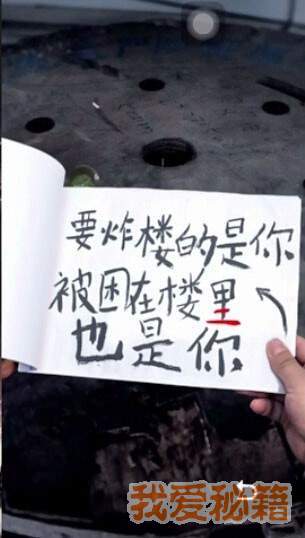 要炸楼的是你
被困在楼里
也是你
我爱秘籍